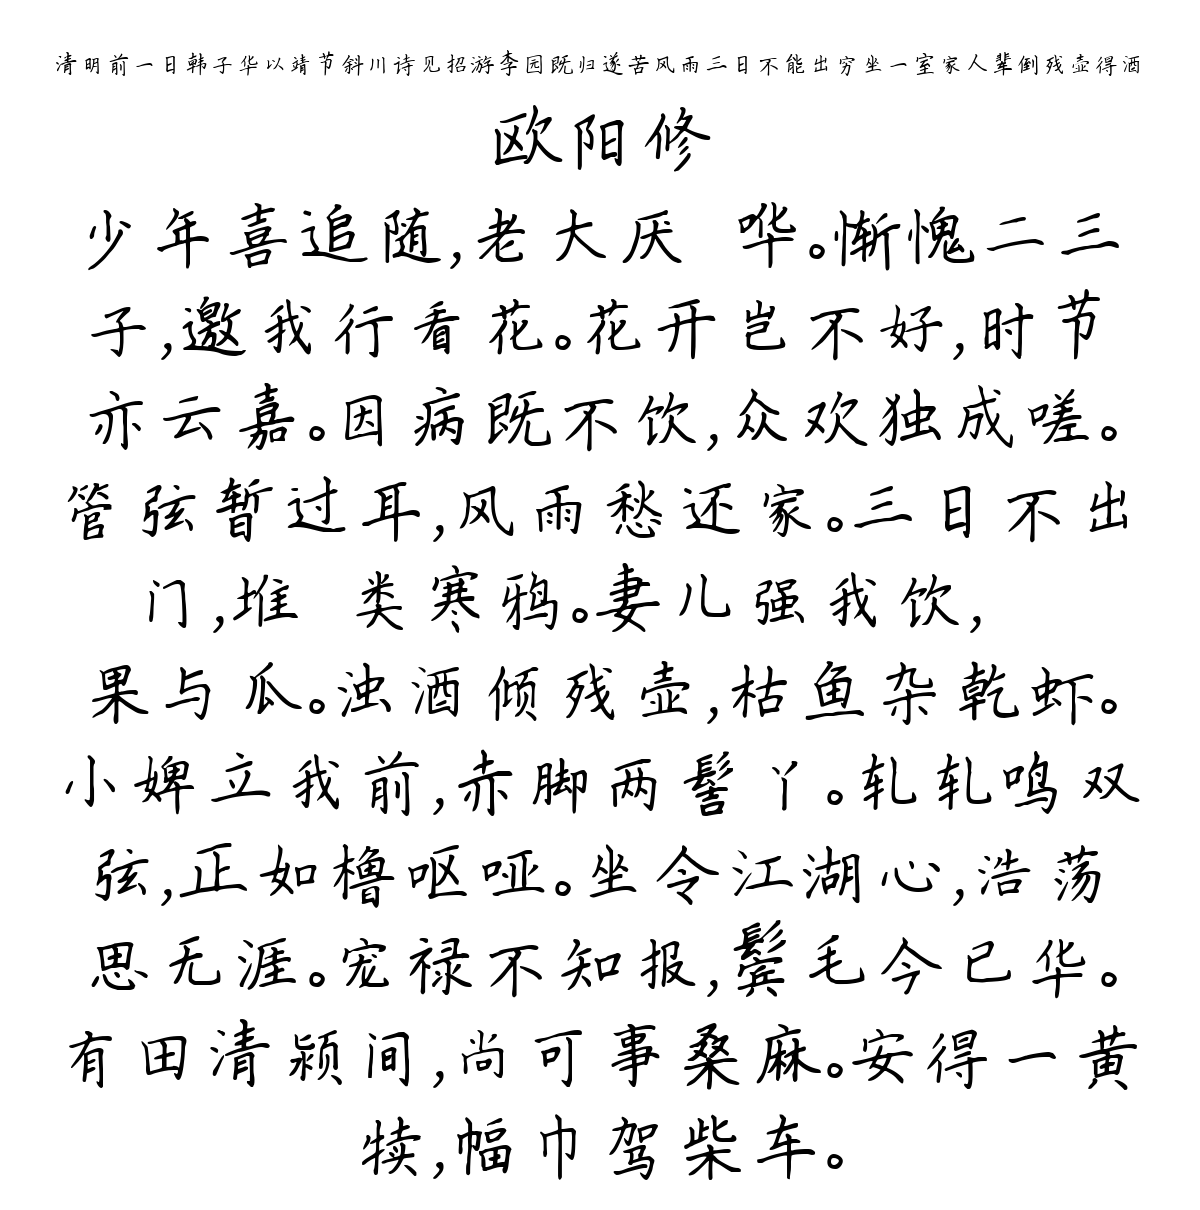 清明前一日韩子华以靖节斜川诗见招游李园既归遂苦风雨三日不能出穷坐一室家人辈倒残壶得酒
欧阳修
少年喜追随,老大厌 哗。惭愧二三
子,邀我行看花。花开岂不好,时节
亦云嘉。因病既不饮,众欢独成嗟。
管弦暂过耳,风雨愁还家。三日不出
门,堆 类寒鸦。妻儿强我饮,
果与瓜。浊酒倾残壶,枯鱼杂乾虾。
小婢立我前,赤脚两髻丫。轧轧鸣双
弦,正如橹呕哑。坐令江湖心,浩荡
思无涯。宠禄不知报,鬓毛今已华。
有田清颍间,尚可事桑麻。安得一黄
犊,幅巾驾柴车。